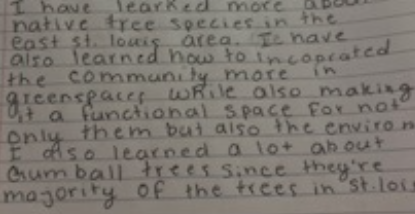 I have learned more about
native tree species in the
east st. louis area. I have
also learned how to incoprated
the community more in
greenspaces while also making
it a functional space for not
only them but also the environ
I also learned a lot about
Gumball trees since they're
majority of the trees in st.